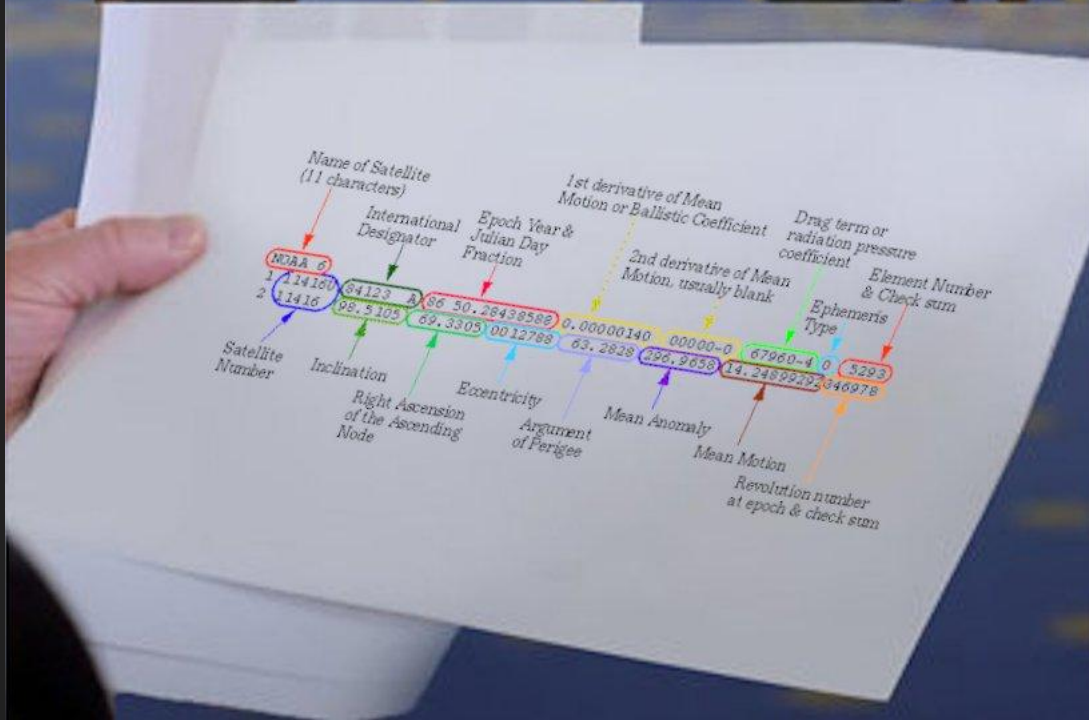 Name of Satellite
(11 characters)
International
Designator
Epoch Year &
Julian Day
Fraction
1st derivative of Mean
Motion or Ballistic Coefficient
2nd derivative of Mean
Motion, usually blank
Drag term or
radiation pressure
coefficient
Ephemeris
Type
Element Number
& Check sum
NOAA 6
1 11416U 84123 A 86 50.28438588 0.00000140 00000-0 67960-4 0 5293
2 11416 98.5105 69.3305 0012788 63.2828 296.9658 14.24899292346978
Satellite
Number
Inclination
Right Ascension
of the Ascending
Node
Eccentricity
Argument
of Perigee
Mean Anomaly
Mean Motion
Revolution number
at epoch & check sum